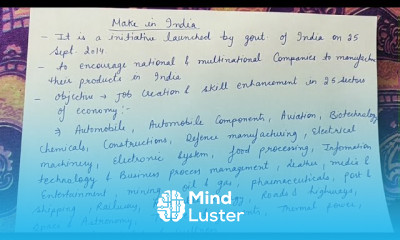 Make in India
- It is a initiative launched by govt. of India on 25
Sept 2014
- to encourage national & multinational Companies to manufacture
their products in India
- Objective → Job Creation & skill enhancement in 25 sectors
of economy :-
→ Automobile, Automobile Components, Aviation, Biotechnology
Chemicals, Constructions, Defence manufacturing, Electrical
machinery, Electronic System, food processing, Information
technology & Business process management, leather, media &
Entertainment, mining, oil & gas, pharmaceuticals, port &
shipping, Railway, Roads & highways,
thermal power,
Mind
Luster